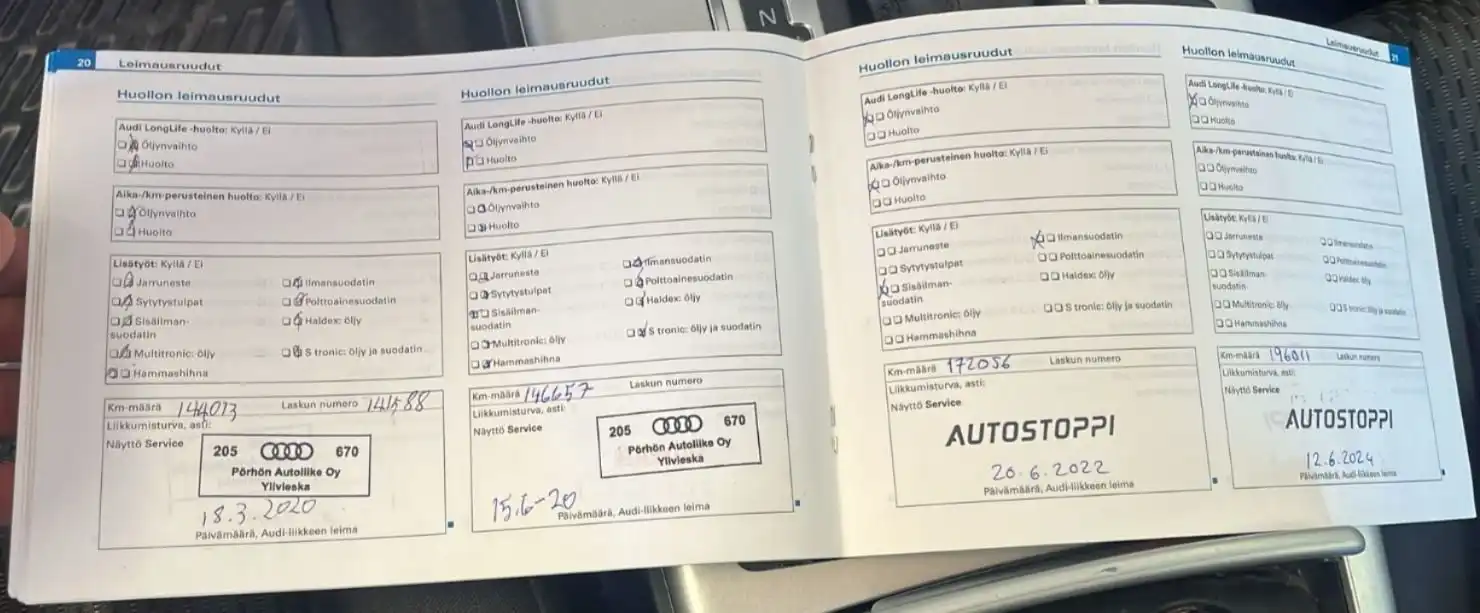 20 Leimausruudut
Huollon leimausruudut
Audi LongLife -huolto: Kyllä / Ei
Öljynvaihto
Huolto
Aika-/km-perusteinen huolto: Kyllä / Ei
Öljynvaihto
Huolto
Lisätyöt: Kyllä / Ei
Jarruneste
Ilmansuodatin
Sytytystulpat
Polttoainesuodatin
Sisäilman-
suodatin
Haldex: öljy
Multitronic: öljy
S tronic: öljy ja suodatin
Hammashihna
Km-määrä 144013 Laskun numero 141588
Liikkumisturva, asti:
Näyttö Service
205 670
Pörhön Autoliike Oy
Ylivieska
18.3.2020
Päivämäärä, Audi-liikkeen leima
Huollon leimausruudut
Audi LongLife -huolto: Kyllä / Ei
Öljynvaihto
Huolto
Aika-/km-perusteinen huolto: Kyllä / Ei
Öljynvaihto
Huolto
Lisätyöt: Kyllä / Ei
Jarruneste
Ilmansuodatin
Sytytystulpat
Polttoainesuodatin
Sisäilman-
suodatin
Haldex: öljy
Multitronic: öljy
S tronic: öljy ja suodatin
Hammashihna
Km-määrä 146657 Laskun numero
Liikkumisturva, asti:
Näyttö Service
205 670
Pörhön Autoliike Oy
Ylivieska
15.6-20
Päivämäärä, Audi-liikkeen leima
Huollon leimausruudut
Audi LongLife -huolto: Kyllä / Ei
Öljynvaihto
Huolto
Aika-/km-perusteinen huolto: Kyllä / Ei
Öljynvaihto
Huolto
Lisätyöt: Kyllä / Ei
Jarruneste
Ilmansuodatin
Sytytystulpat
Polttoainesuodatin
Sisäilman-
suodatin
Haldex: öljy
Multitronic: öljy
S tronic: öljy ja suodatin
Hammashihna
Km-määrä 172056 Laskun numero
Liikkumisturva, asti:
Näyttö Service
AUTOSTOPPI
20.6.2022
Päivämäärä, Audi-liikkeen leima
Leimausruudut 21
Huollon leimausruudut
Audi LongLife -huolto: Kyllä / Ei
Öljynvaihto
Huolto
Aika-/km-perusteinen huolto: Kyllä / Ei
Öljynvaihto
Huolto
Lisätyöt: Kyllä / Ei
Jarruneste
Ilmansuodatin
Sytytystulpat
Polttoainesuodatin
Sisäilman-
suodatin
Haldex: öljy
Multitronic: öljy
S tronic: öljy ja suodatin
Hammashihna
Km-määrä 196011 Laskun numero
Liikkumisturva, asti:
Näyttö Service
AUTOSTOPPI
12.6.2024
Päivämäärä, Audi-liikkeen leima
N